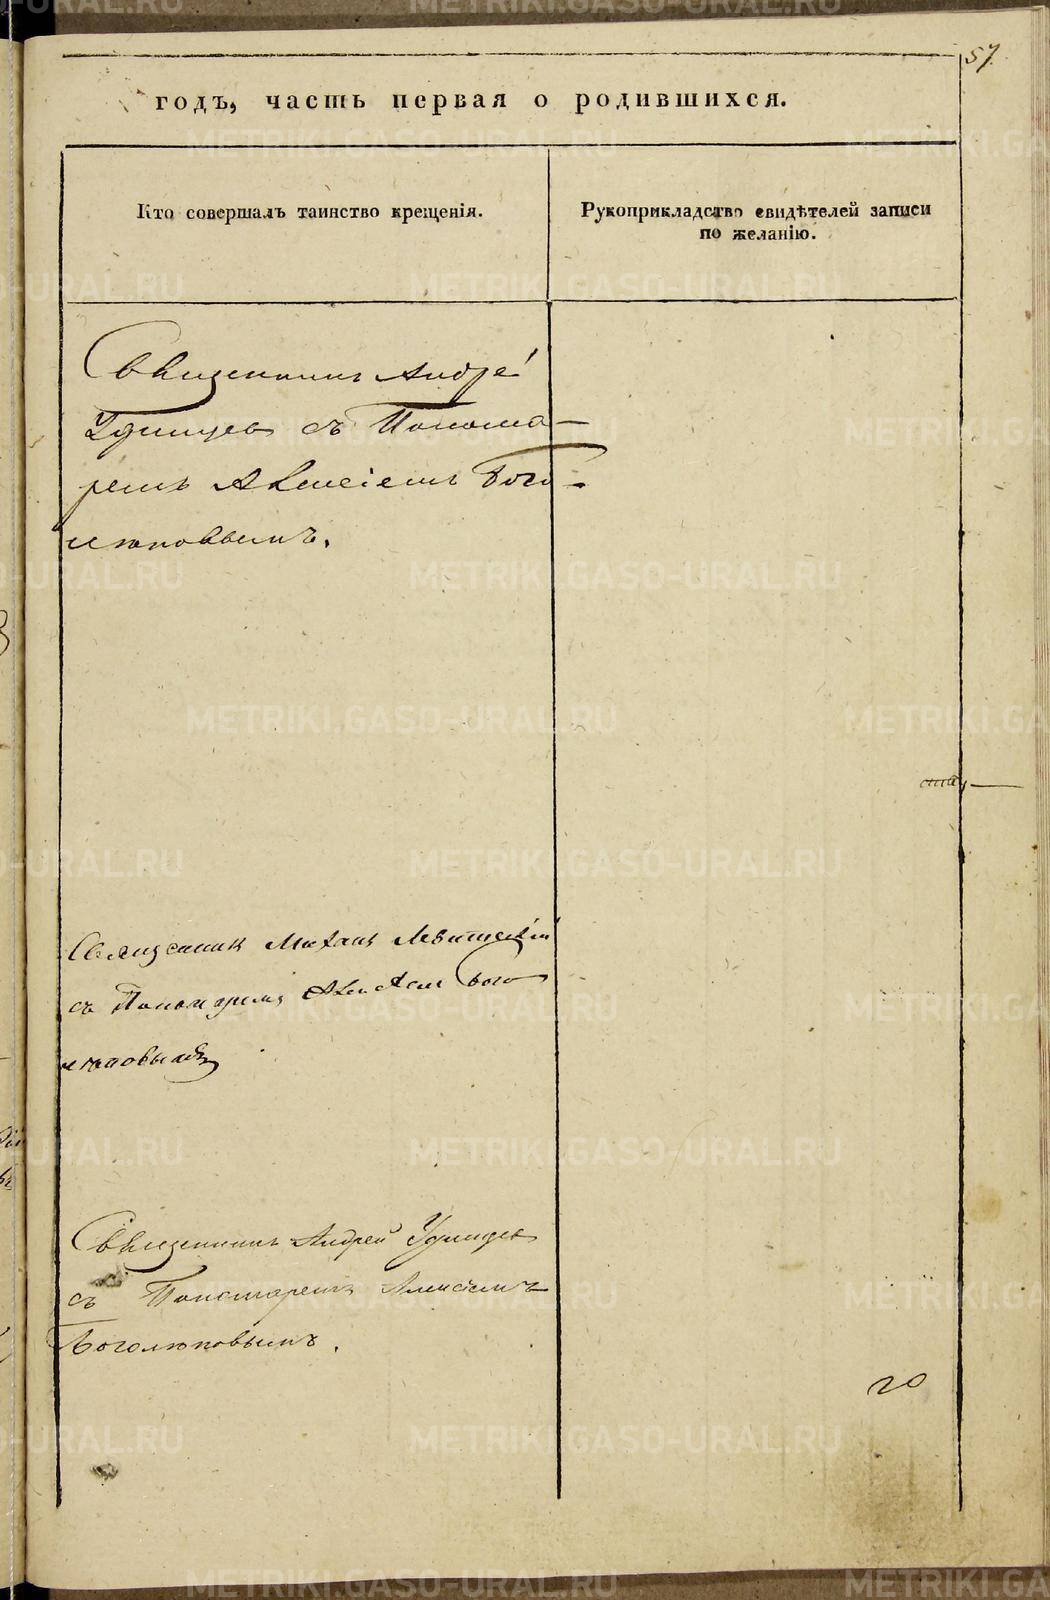 57
годъ, часть первая о родившихся.
Кто совершалъ таинство крещенія.
Рукоприкладство свидѣтелей записи
по желанію.
Священникъ Андрей
Удинцевъ съ Понома-
ремъ Алексіемъ Бого-
люповымъ.
Священникъ Михаилъ Левитскій
съ Пономаремъ Алексіем Бого
люповымъ
Священникъ Андрей Удинцевъ
съ Пономаремъ Алексіемъ
Боголюповымъ.
20
METRIKI.GASO-URAL.RU